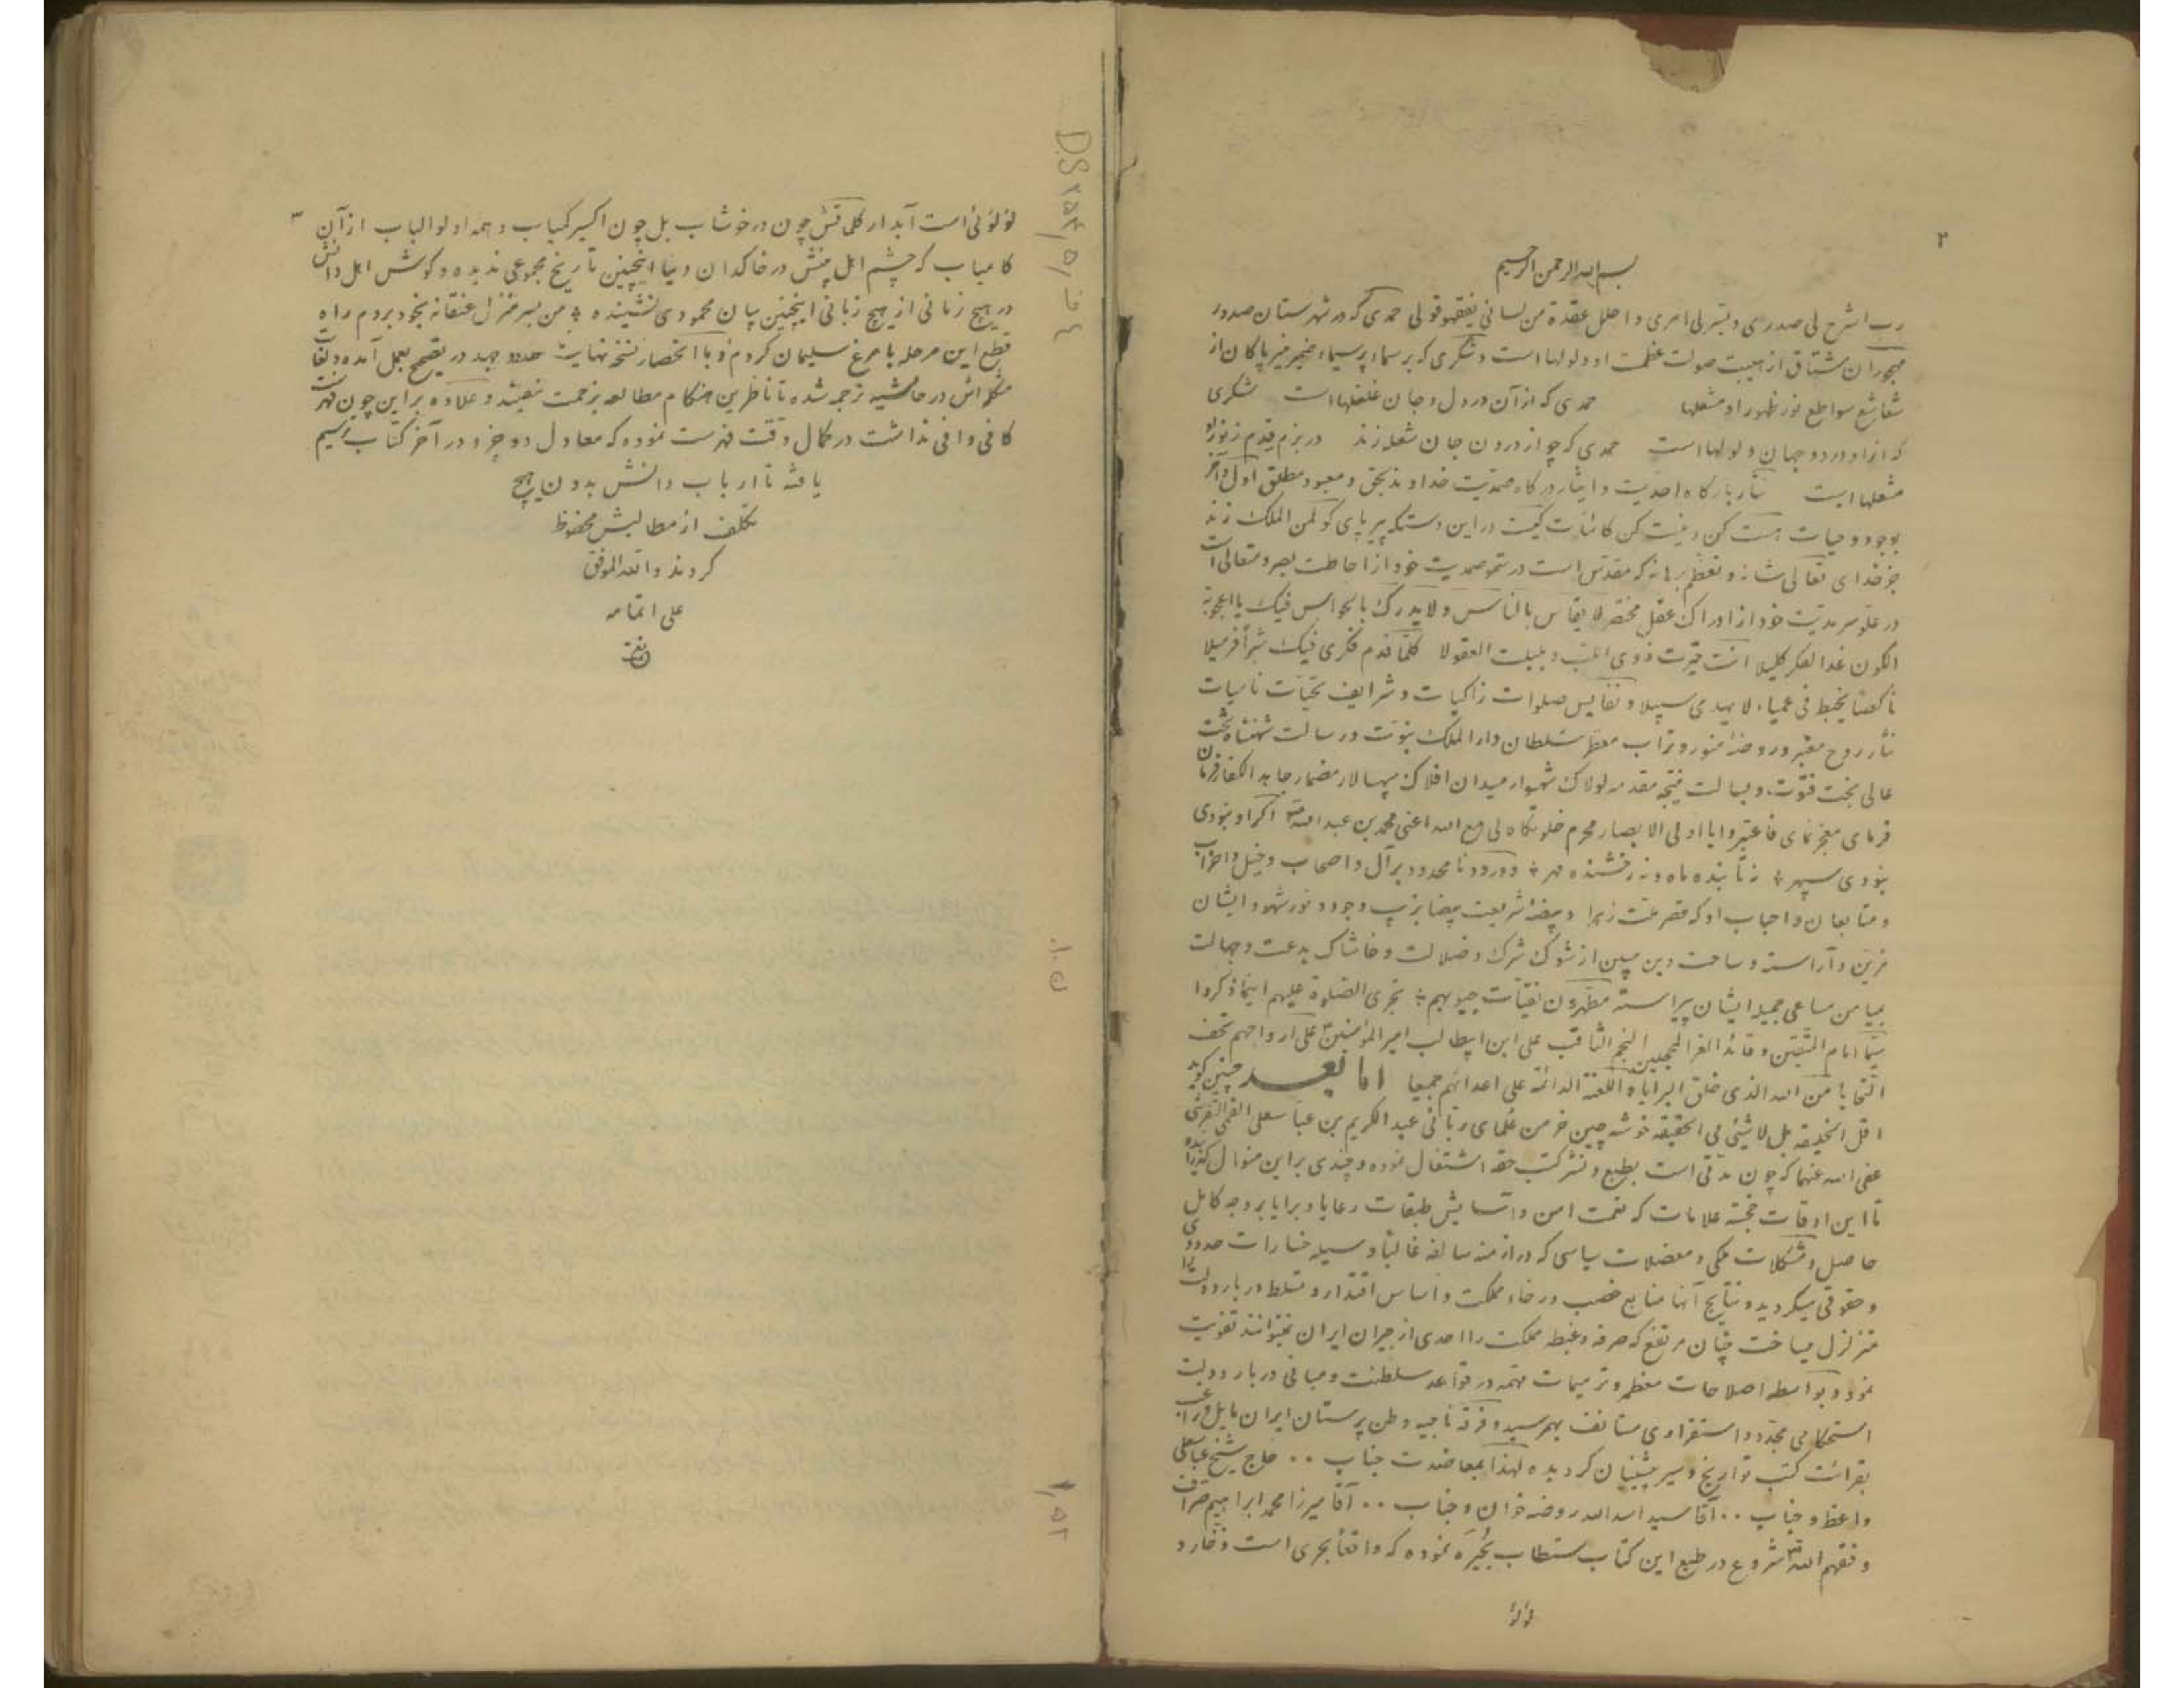 ۲
بسم الله الرحمن الرحیم
رب اشرح لی صدری و یسر لی امری و احلل عقدة من لسانی یفقهوا قولی حمدی که در شهرستان صدور
مهجوران مشتاق از هیبت صولت عظمت او ولولها است و شکری که بر سماء پر سیماء ضمیر منیر پاکان از
شعاشع سواطع نور ظهور او مشعلها حمدی که از آن در دل و جان غلغلها است شکری
که از او در دو جهان ولولها است حمدی که چو از درون جان شعله زند در بزم قدم ز نور او
مشعلها است نثار بارگاه احدیت و ایثار درگاه صمدیت خداوند بحق و معبود مطلق اول و آخر
بوجود و حیات هست کن و نیست کن کائنات کیست در این دستگه دیر پای کو لمن الملک زند
جز خدای تعالی شانه و تعظم برهانه که مقدس است در سمو صمدیت خود از احاطت بصر و متعالی است
در علو سرمدیت خود از ادراک عقل مختصر لا یقاس بالناس و لا یدرک بالحواس فیک یا اعجوبة
الکون غدا الفکر کلیلا انت حیرت ذوی اللب و بلبلت العقولا کلما قدم فکری فیک شبراً فر میلا
ناکصاً یخبط فی عمیاء لا یهدی سبیلا و نفایس صلوات زاکیات و شرایف تحیات نامیات
نثار روح معنبر و روضه منور و تراب معطر سلطان دار الملک نبوت و رسالت شهنشاه تخت
عالی بخت فتوت و بسالت نتیجه مقدمه لولاک شهسوار میدان افلاک سپهسالار مضمار جاهد الکفار فرمان
فرمای معجز نمای فاعتبروا یا اولی الابصار محرم خلوتگاه لی مع الله اعنی محمد بن عبد الله ص اگر او نبودی
نبودی سپهر نه تابنده ماه و نه رخشنده مهر و درود نامحدود بر آل و اصحاب و خیل و احزاب
و متابعان و احباب او که قصر ملت زهرا و بیضه شریعت بیضا بزیب وجود و نور شهود ایشان
مزین و آراسته و ساحت دین مبین از شوک شرک و ضلالت و خاشاک بدعت و جهالت
بمیامن مساعی جمیله ایشان پیراسته مطهرون نقیات جیوبهم تجری الصلوة علیهم اینما ذکروا
سیما امام المتقین و قائد الغر المحجلین النجم الثاقب علی ابن ابیطالب امیر المؤمنین علی ارواحهم تحف
التحایا من الله الذی خلق البرایا و اللعنة الدائمة علی اعدائهم جمیعا اما بعد چنین گوید
اقل الخلیقه بل لا شیئ فی الحقیقه خوشه چین خرمن علمای ربانی عبد الکریم بن عباسعلی القمی التفرشی
عفی الله عنهما که چون مدتی است بطبع و نشر کتب حقه اشتغال نموده و چندی بر این منوال گذرانیده
تا این اوقات خجسته علامات که نعمت امن و آسایش طبقات رعایا و برایا بر وجه کامل
حاصل و مشکلات ملکی و معضلات سیاسی که در ازمنه سالفه غالباً وسیله خسارات حدودی
و حقوقی میگردید و نتایج آنها منابع خصب و رخاء مملکت و اساس اقتدار و تسلط دربار دولت را
متزلزل میساخت چنان مرتفع که صرفه و غبطه مملکت را احدی از جیران ایران نمیتوانند تفویت
نمود و بواسطه اصلاحات معظم و ترمیمات مهمه در قواعد سلطنت و مبانی دربار دولت
استحکامی مجدد و استقراری مستانف بهمرسید و فرقه ناجیه وطن پرستان ایران مایل و راغب
بقرائت کتب تواریخ و سیر پیشینیان گردیده لهذا بمعاضدت جناب ۰۰ حاج شیخ عباسعلی
واعظ و جناب ۰۰ آقا سید اسد الله روضه خوان و جناب ۰۰ آقا میرزا محمد ابراهیم صراف
وفقهم الله شروع در طبع این کتاب مستطاب بحیره نموده که واقعاً بحری است ذخار و
لؤلؤ
۳
لؤلؤئی است آبدار کلماتش چون در خوشاب بل چون اکسیر کمیاب و همه اولو الباب از آن
کامیاب که چشم اهل بینش در خاکدان دنیا اینچنین تاریخ مجموعی ندیده و گوش اهل دانش
در هیچ زمانی از هیچ زبانی اینچنین بیان محمودی نشنیده من بسر منزل عنقا نه بخود بردم راه
قطع این مرحله با مرغ سلیمان کردم و با انحصار نسخه نهایت جد و جهد در تصحیح بعمل آمده و لغات
مشکله اش در حاشیه ترجمه شده تا ناظرین هنگام مطالعه بزحمت نیفتند و علاوه بر این چون فهرست
کافی وافی نداشت در کمال دقت فهرست نموده که معادل دو جزو در آخر کتاب ترسیم
یافته تا ارباب دانش بدون هیچ
تکلف از مطالبش محفوظ
گردند والله الموفق
علی اتمامه
DS۲۵۴٫۵٫
ن۱۰